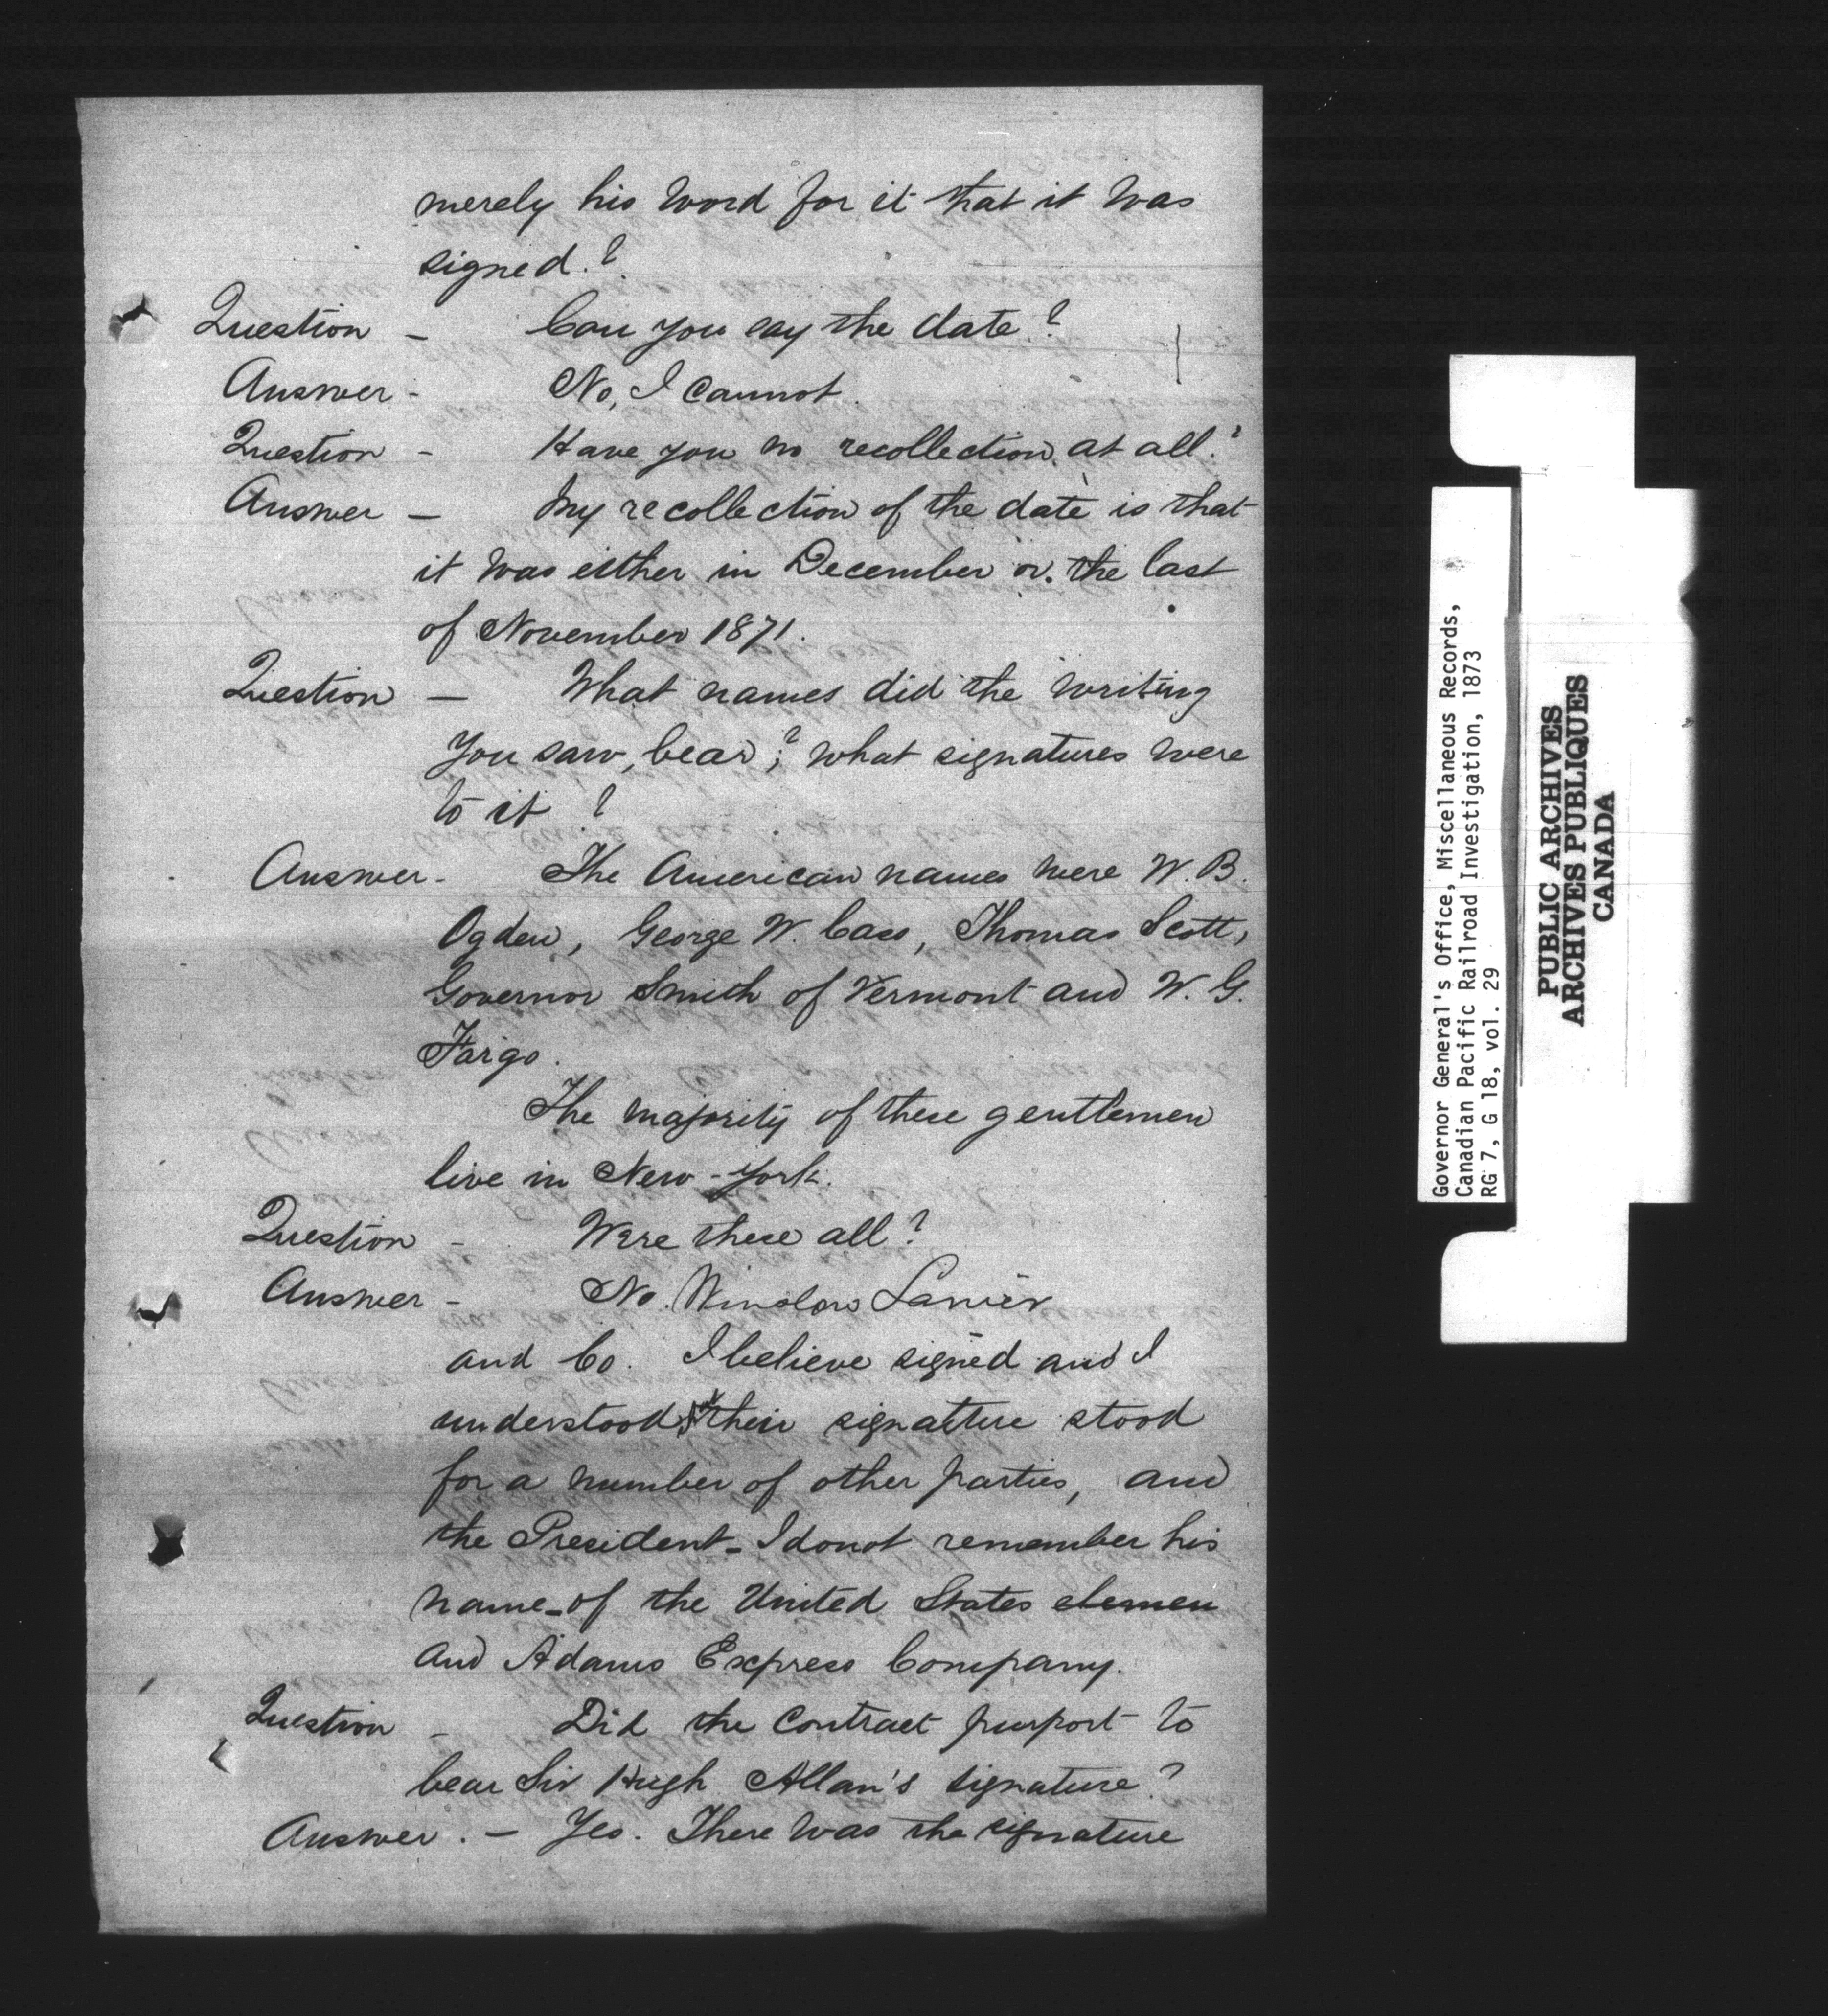 merely his word for it that it was
signed.?
Question - Can you say the date?
Answer - No, I cannot.
Question - Have you no recollection at all?
Answer - My recollection of the date is that
it was either in December or the last
of November 1871.
Question - What names did the writing
you saw, bear;? what signatures were
to it?
Answer - The American names were W. B.
Ogden, George W. Cass, Thomas Scott,
Governor Smith of Vermont and W. G.
Fargo.
The majority of these gentlemen
live in New-York.
Question - Were these all?
Answer - No. Winslow Lanier
and Co. I believe signed and I
understood that their signature stood
for a number of other parties, and
the President - I do not remember his
name - of the United States
and Adams Express Company.
Question - Did the Contract purport to
bear Sir Hugh Allan's signature?
Answer. - Yes. There was the signature
Governor General's Office, Miscellaneous Records,
Canadian Pacific Railroad Investigation, 1873
RG 7, G 18, vol. 29
PUBLIC ARCHIVES
ARCHIVES PUBLIQUES
CANADA